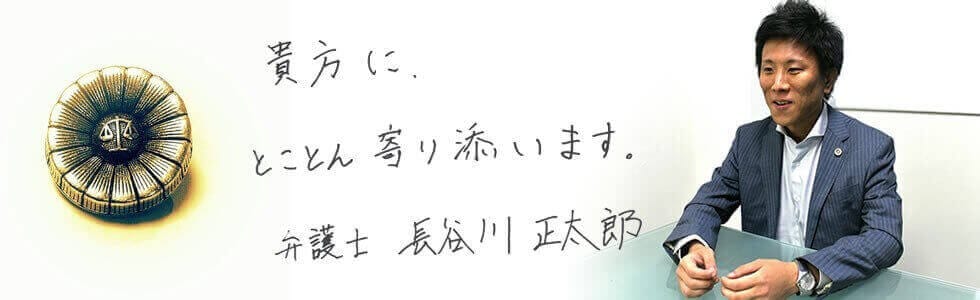 貴方に、
とことん寄り添います。
弁護士 長谷川正太郎